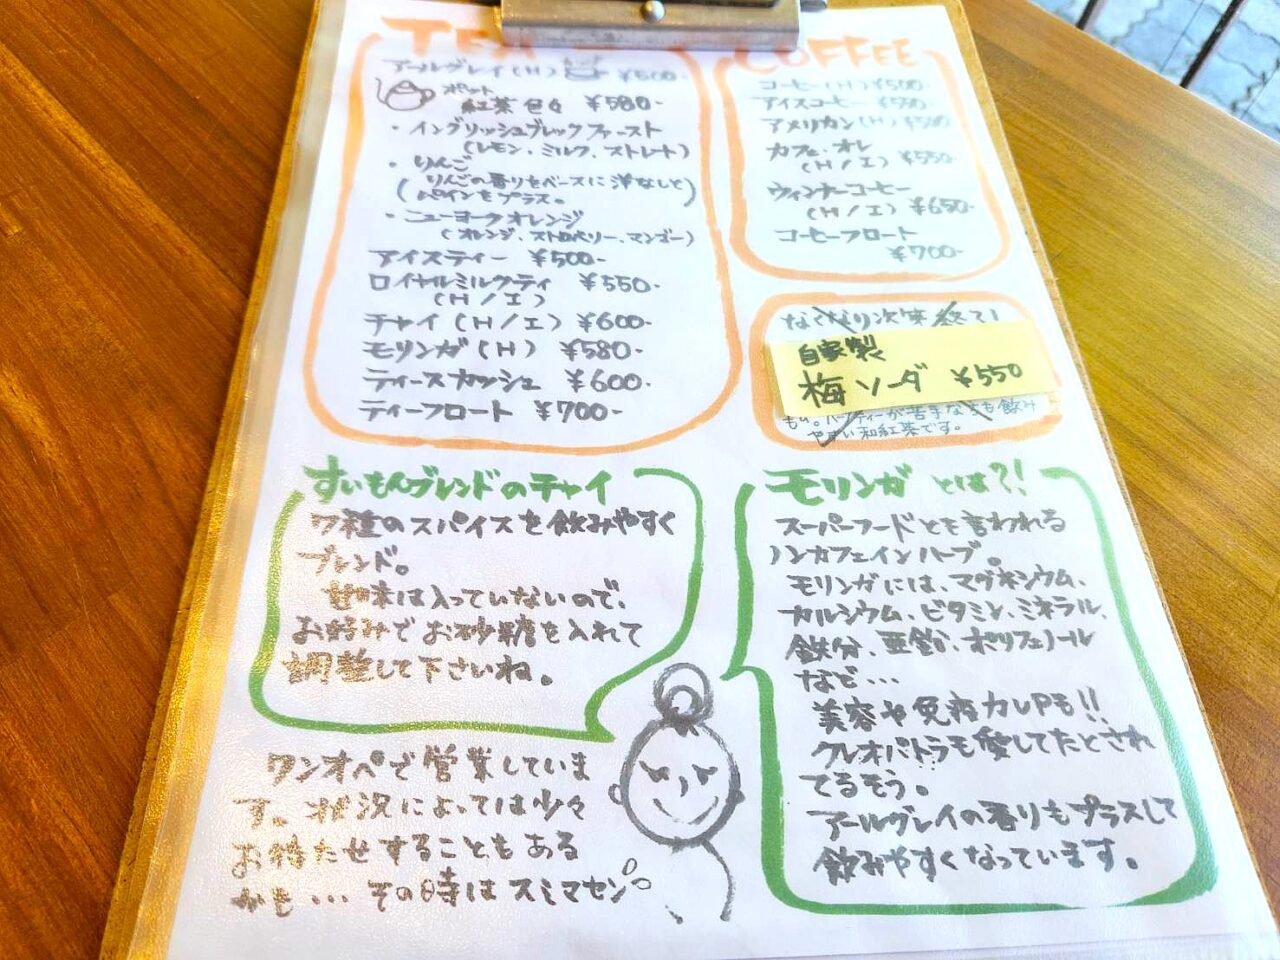 TEA
アールグレイ(H) ¥500-
ポット
紅茶色々 ¥580-
・イングリッシュブレックファースト
(レモン・ミルク、ストレート)
・りんご
(りんごの香りをベースに洋なしと
パインをプラス。)
・ニューヨークオレンジ
(オレンジ、ストロベリー、マンゴー)
アイスティー ¥500-
ロイヤルミルクティ ¥550-
(H/I)
チャイ(H/I) ¥600-
モリンガ(H) ¥580-
ティースカッシュ ¥600-
ティーフロート ¥700-
COFFEE
コーヒー(H) ¥500-
アイスコーヒー ¥550-
アメリカン(H) ¥500
カフェ・オレ
(H/I) ¥550-
ウィンナーコーヒー
(H/I) ¥650-
コーヒーフロート
¥700-
なくなり次第終了!
自家製
梅ソーダ ¥550
も飲み
やすい和紅茶です。
すいもんブレンドのチャイ
7種のスパイスを飲みやすく
ブレンド。
甘味は入っていないので、
お好みでお砂糖を入れて
調整して下さいね。
モリンガとは?!
スーパーフードとも言われる
ノンカフェインハーブ。
モリンガには、マグネシウム、
カルシウム、ビタミン、ミネラル、
鉄分、亜鉛、ポリフェノール
など…
美容や免疫力UPも!!
クレオパトラも愛してたとされ
てるそう。
アールグレイの香りもプラスして
飲みやすくなっています。
ワンオペで営業していま
す。状況によっては少々
お待たせすることもある
かも…その時はスミマセン。